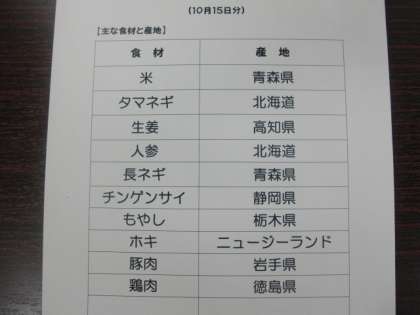 (10月15日分)
【主な食材と産地】
食 材 産 地
米 青森県
タマネギ 北海道
生姜 高知県
人参 北海道
長ネギ 青森県
チンゲンサイ 静岡県
もやし 栃木県
ホキ ニュージーランド
豚肉 岩手県
鶏肉 徳島県